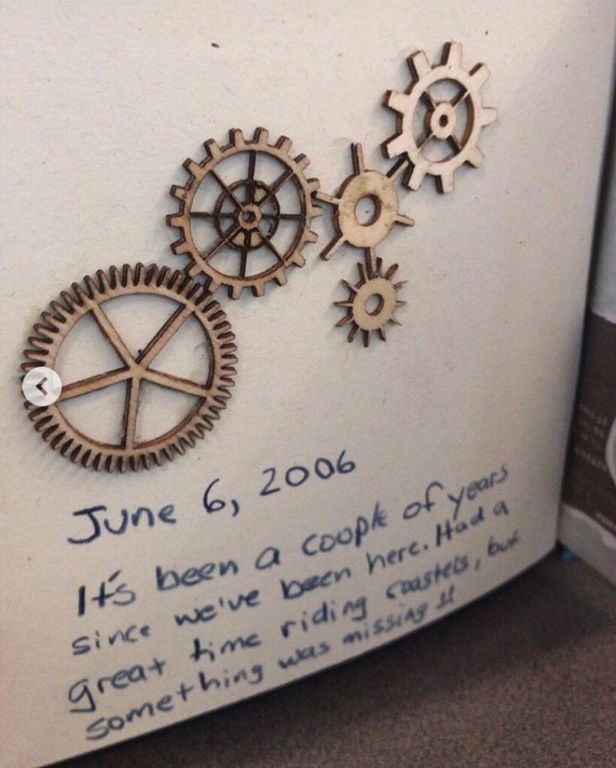 June 6, 2006
It's been a couple of years
since we've been here. Had a
great time riding coasters, but
something was missing!!